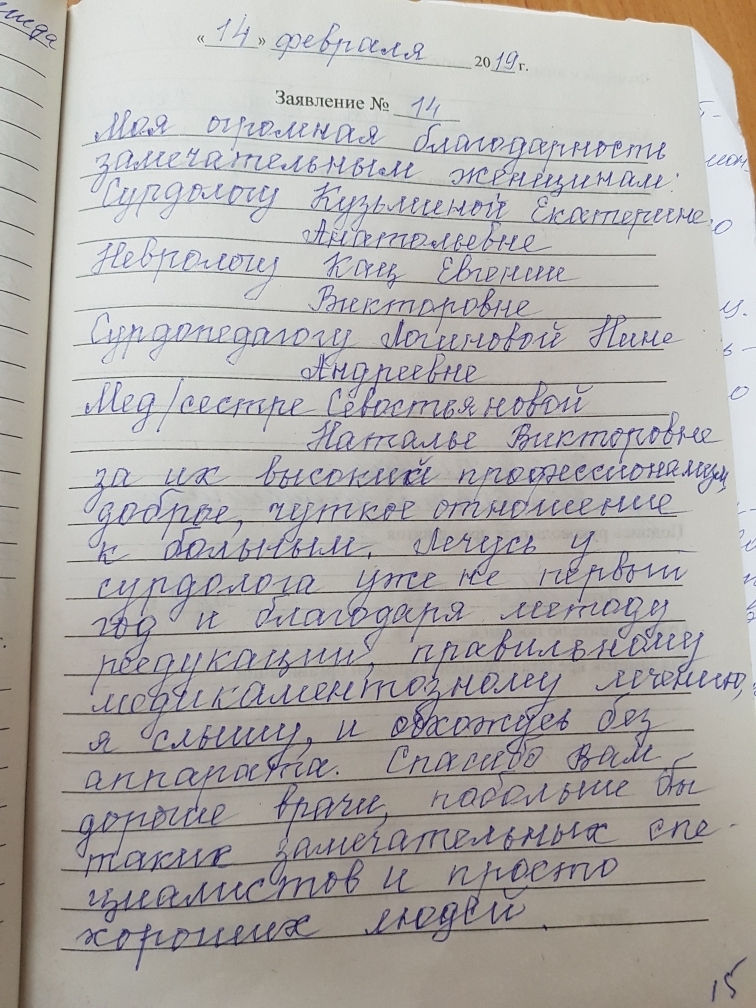 «14» февраля 2019 г.
Заявление № 14
Моя огромная благодарность
замечательным женщинам:
Сурдологу Кузьминой Екатерине
Анатольевне
Неврологу Кац Евгении
Викторовне
Сурдопедагогу Логиновой Нине
Андреевне
Мед/сестре Севостьяновой
Наталье Викторовне
за их высокий профессионализм,
доброе, чуткое отношение
к больным. Лечусь у
сурдолога уже не первый
год и благодаря методу
реедукации, правильному
медикаментозному лечению,
я слышу, и обхожусь без
аппарата. Спасибо Вам
дорогие врачи, побольше бы
таких замечательных спе-
циалистов и просто
хороших людей.
15